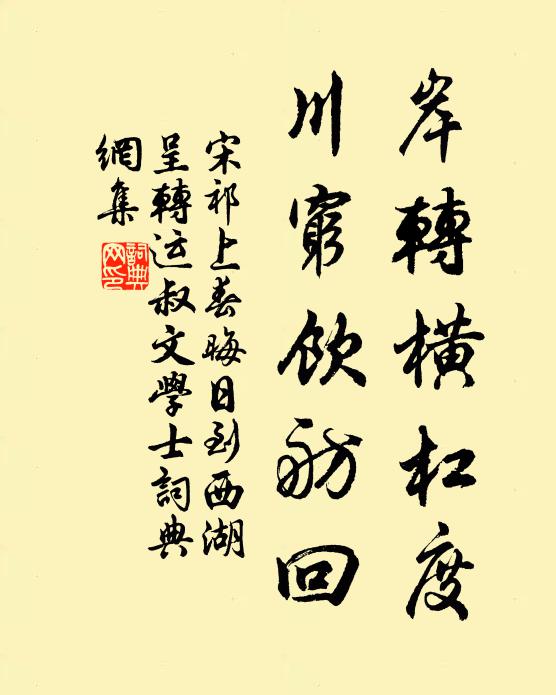 岸轉橫杠度
川窮飲舫回
宋祁上春晦日到西湖
呈轉运叔文學士詞典
網集
詞典
网印